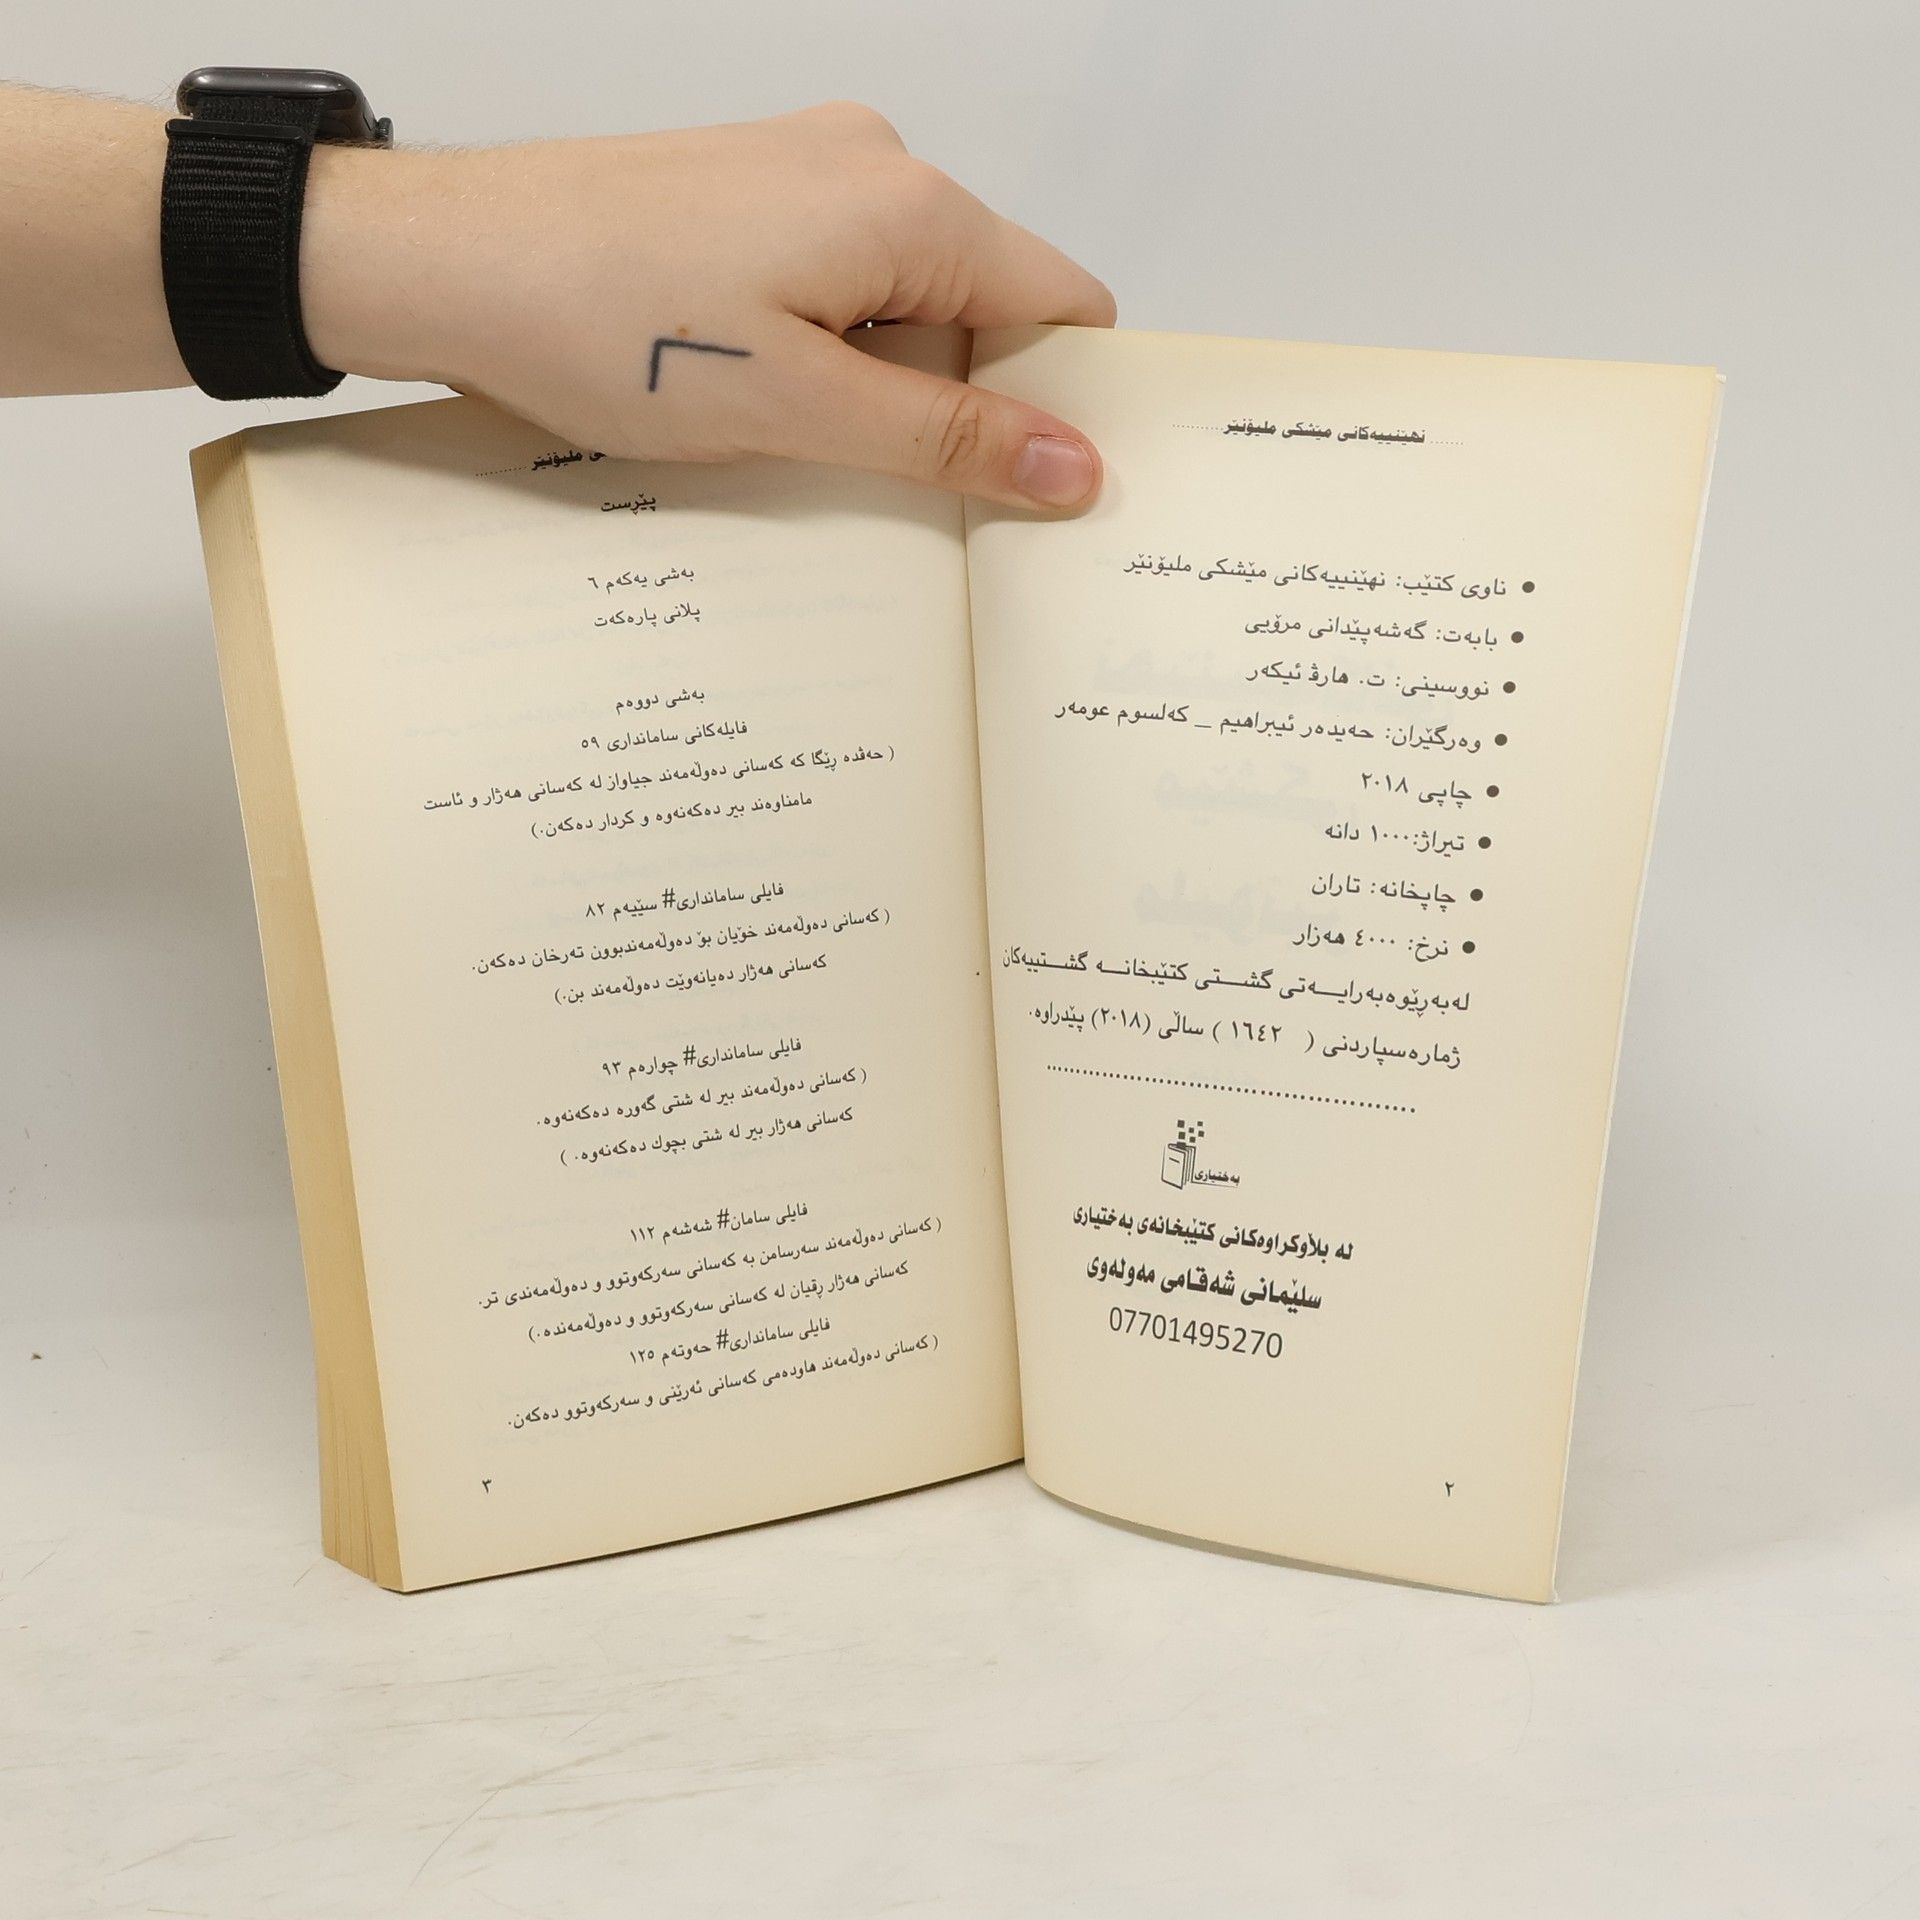 ....... نهێنییەکانی مێشکی ملیۆنێر ...........
● ناوی کتێب: نهێنییەکانی مێشکی ملیۆنێر
● بابەت: گەشەپێدانی مرۆیی
● نووسینی: ت. هارڤ ئیکەر
● وەرگێران: حەیدەر ئیبراهیم _ کەلسوم عومەر
● چاپی ٢٠١٨
● تیراژ:١٠٠٠ دانە
● چاپخانە: تاران
● نرخ: ٤٠٠٠ هەزار
لەبەڕێوەبەرایـــەتی گشـــتی کتێبخانـــە گشـــتییەکان
ژمارەسپاردنی ( ١٦٤٢ ) ساڵی (٢٠١٨) پێدراوە.
بەختیاری
لە بڵاوکراوەکانی کتێبخانەی بەختیاری
سلێمانی شەقامی مەولەوی
07701495270
٢
ملیۆنێر ...........
پێڕست
بەشی یەکەم ٦
پلانی پارەکەت
بەشی دووەم
فایلەکانی سامانداری ٥٩
( حەڤدە ڕێگا کە کەسانی دەوڵەمەند جیاواز لە کەسانی هەژار و ئاست
مامناوەند بیر دەکەنەوە و کردار دەکەن.)
فایلی سامانداری# سێیەم ٨٢
( کەسانی دەوڵەمەند خۆیان بۆ دەوڵەمەندبوون تەرخان دەکەن.
کەسانی هەژار دەیانەوێت دەوڵەمەند بن.)
فایلی سامانداری# چوارەم ٩٣
( کەسانی دەوڵەمەند بیر لە شتی گەورە دەکەنەوە.
کەسانی هەژار بیر لە شتی بچوك دەکەنەوە. )
فایلی سامان# شەشەم ١١٢
( کەسانی دەوڵەمەند سەرسامن بە کەسانی سەرکەوتوو و دەوڵەمەندی تر.
کەسانی هەژار ڕقیان لە کەسانی سەرکەوتوو و دەوڵەمەندە.)
فایلی سامانداری# حەوتەم ١٢٥
( کەسانی دەوڵەمەند هاودەمی کەسانی ئەرێنی و سەرکەوتوو دەکەن.
٣